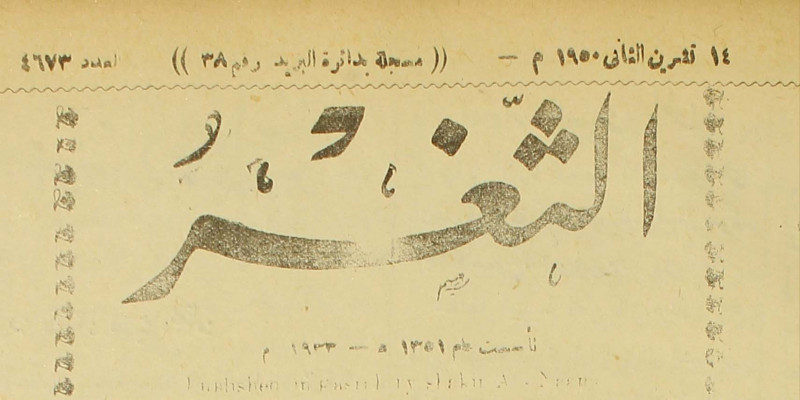 ١٤ تشرين الثاني ١٩٥٠ م — (( مسجلة بدائرة البريد رقم ٣٨ )) العدد ٤٦٧٣
الثَّغْرُ
تأسست عام ١٣٥١ هـ — ١٩٣٣ م